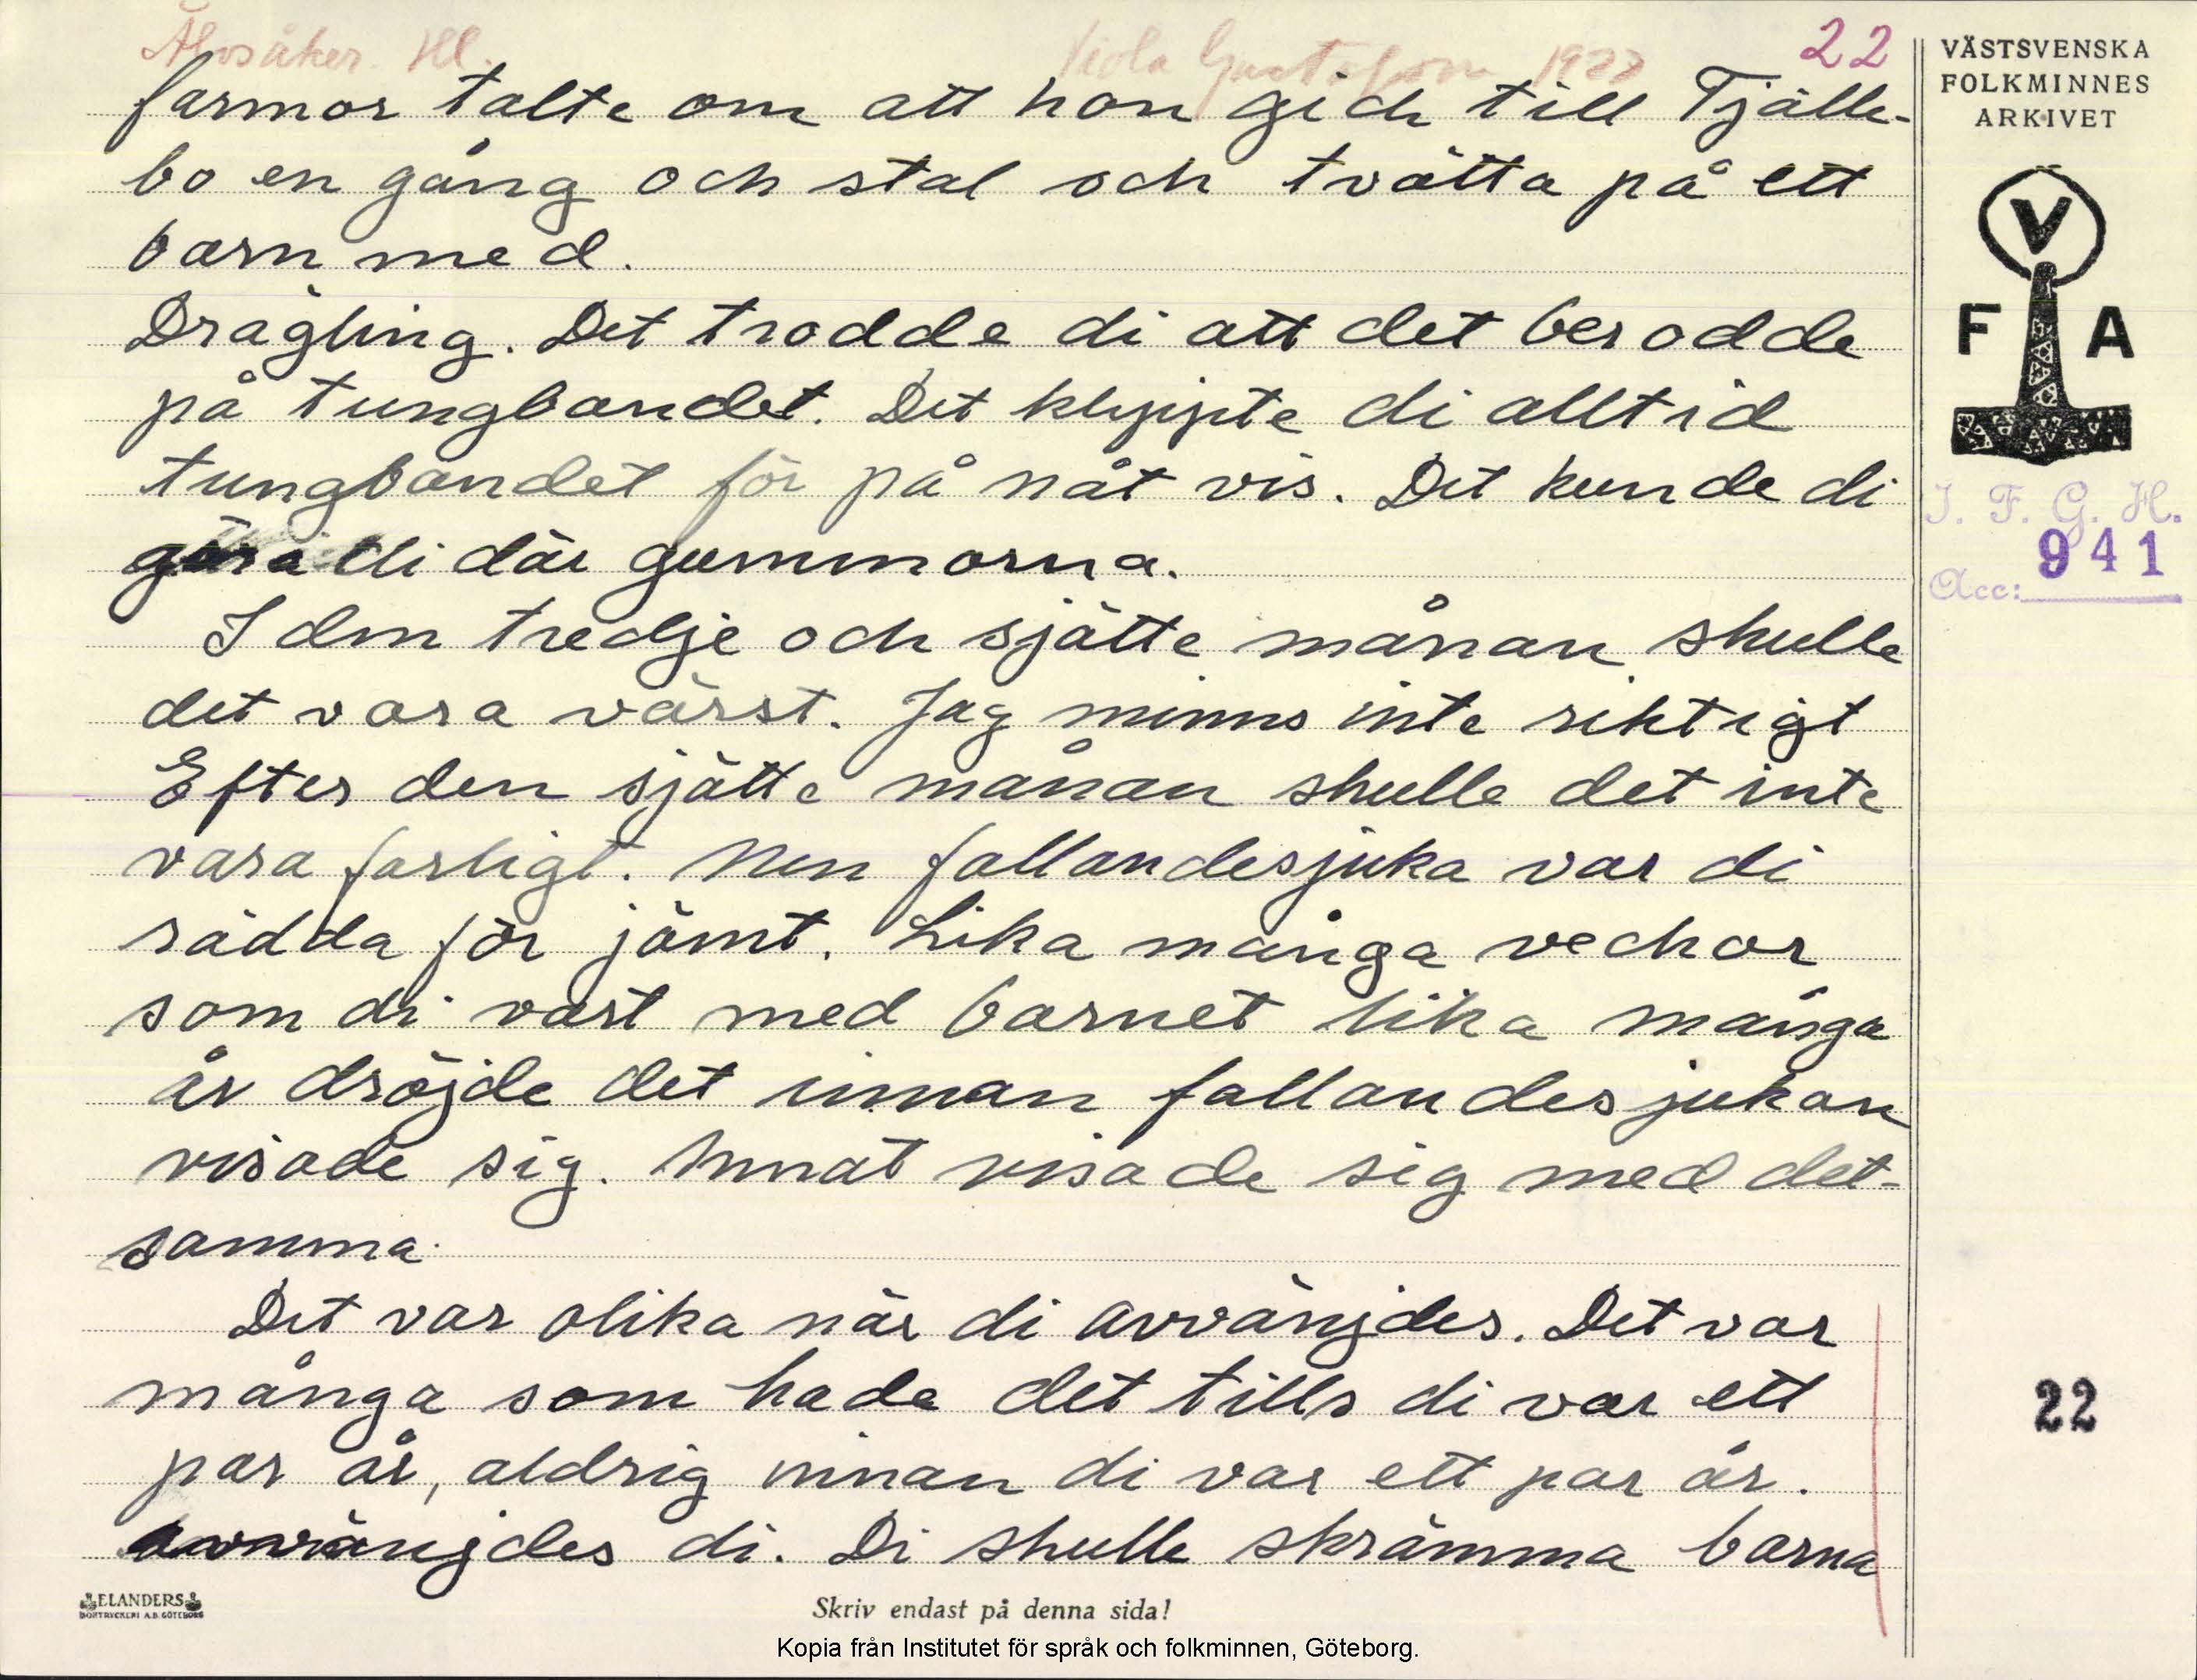 Älvsåker. Hl. Viola Gustafsson 1927 22
farmor talte om att hon gick till Tjälle-
bo en gång och stal och tvätta på ett
barn med.
Drägling. Det trodde di att det berodde
på tungbandet. Det klippte di alltid
tungbandet för på nåt vis. Det kunde di
göra di där gummorna.
I dm tredje och sjätte månan skulle
det vara värst. Jag minns inte riktigt
Efter den sjätte månan skulle det inte
vara farligt. Men fallandesjuka var di
rädda för jämt. Lika många veckor
som di vart med barnet lika många
år dröjde det innan fallandesjukan
visade sig. Annat visade sig med det-
samma.
Det var olika när di avvänjdes. Det var
många som hade det tills di var ett
par år, aldrig innan di var ett par år.
avvänjdes di. Di skulle skrämma barna
VÄSTSVENSKA
FOLKMINNES
ARKIVET
V
F A
I. F. G. H.
941
Acc:
22
ELANDERS
BOKTRYCKERI A.B. GÖTEBORG
Skriv endast på denna sida!
Kopia från Institutet för språk och folkminnen, Göteborg.